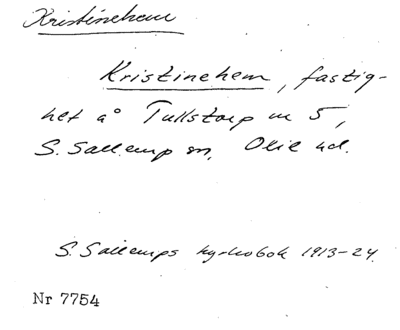 Kristinehem
Kristinehem, fastig-
het å Tullstorp nr 5,
S. Sallerup sn, Oxie hd.
S. Sallerups kyrkobok 1913-24.
Nr 7754